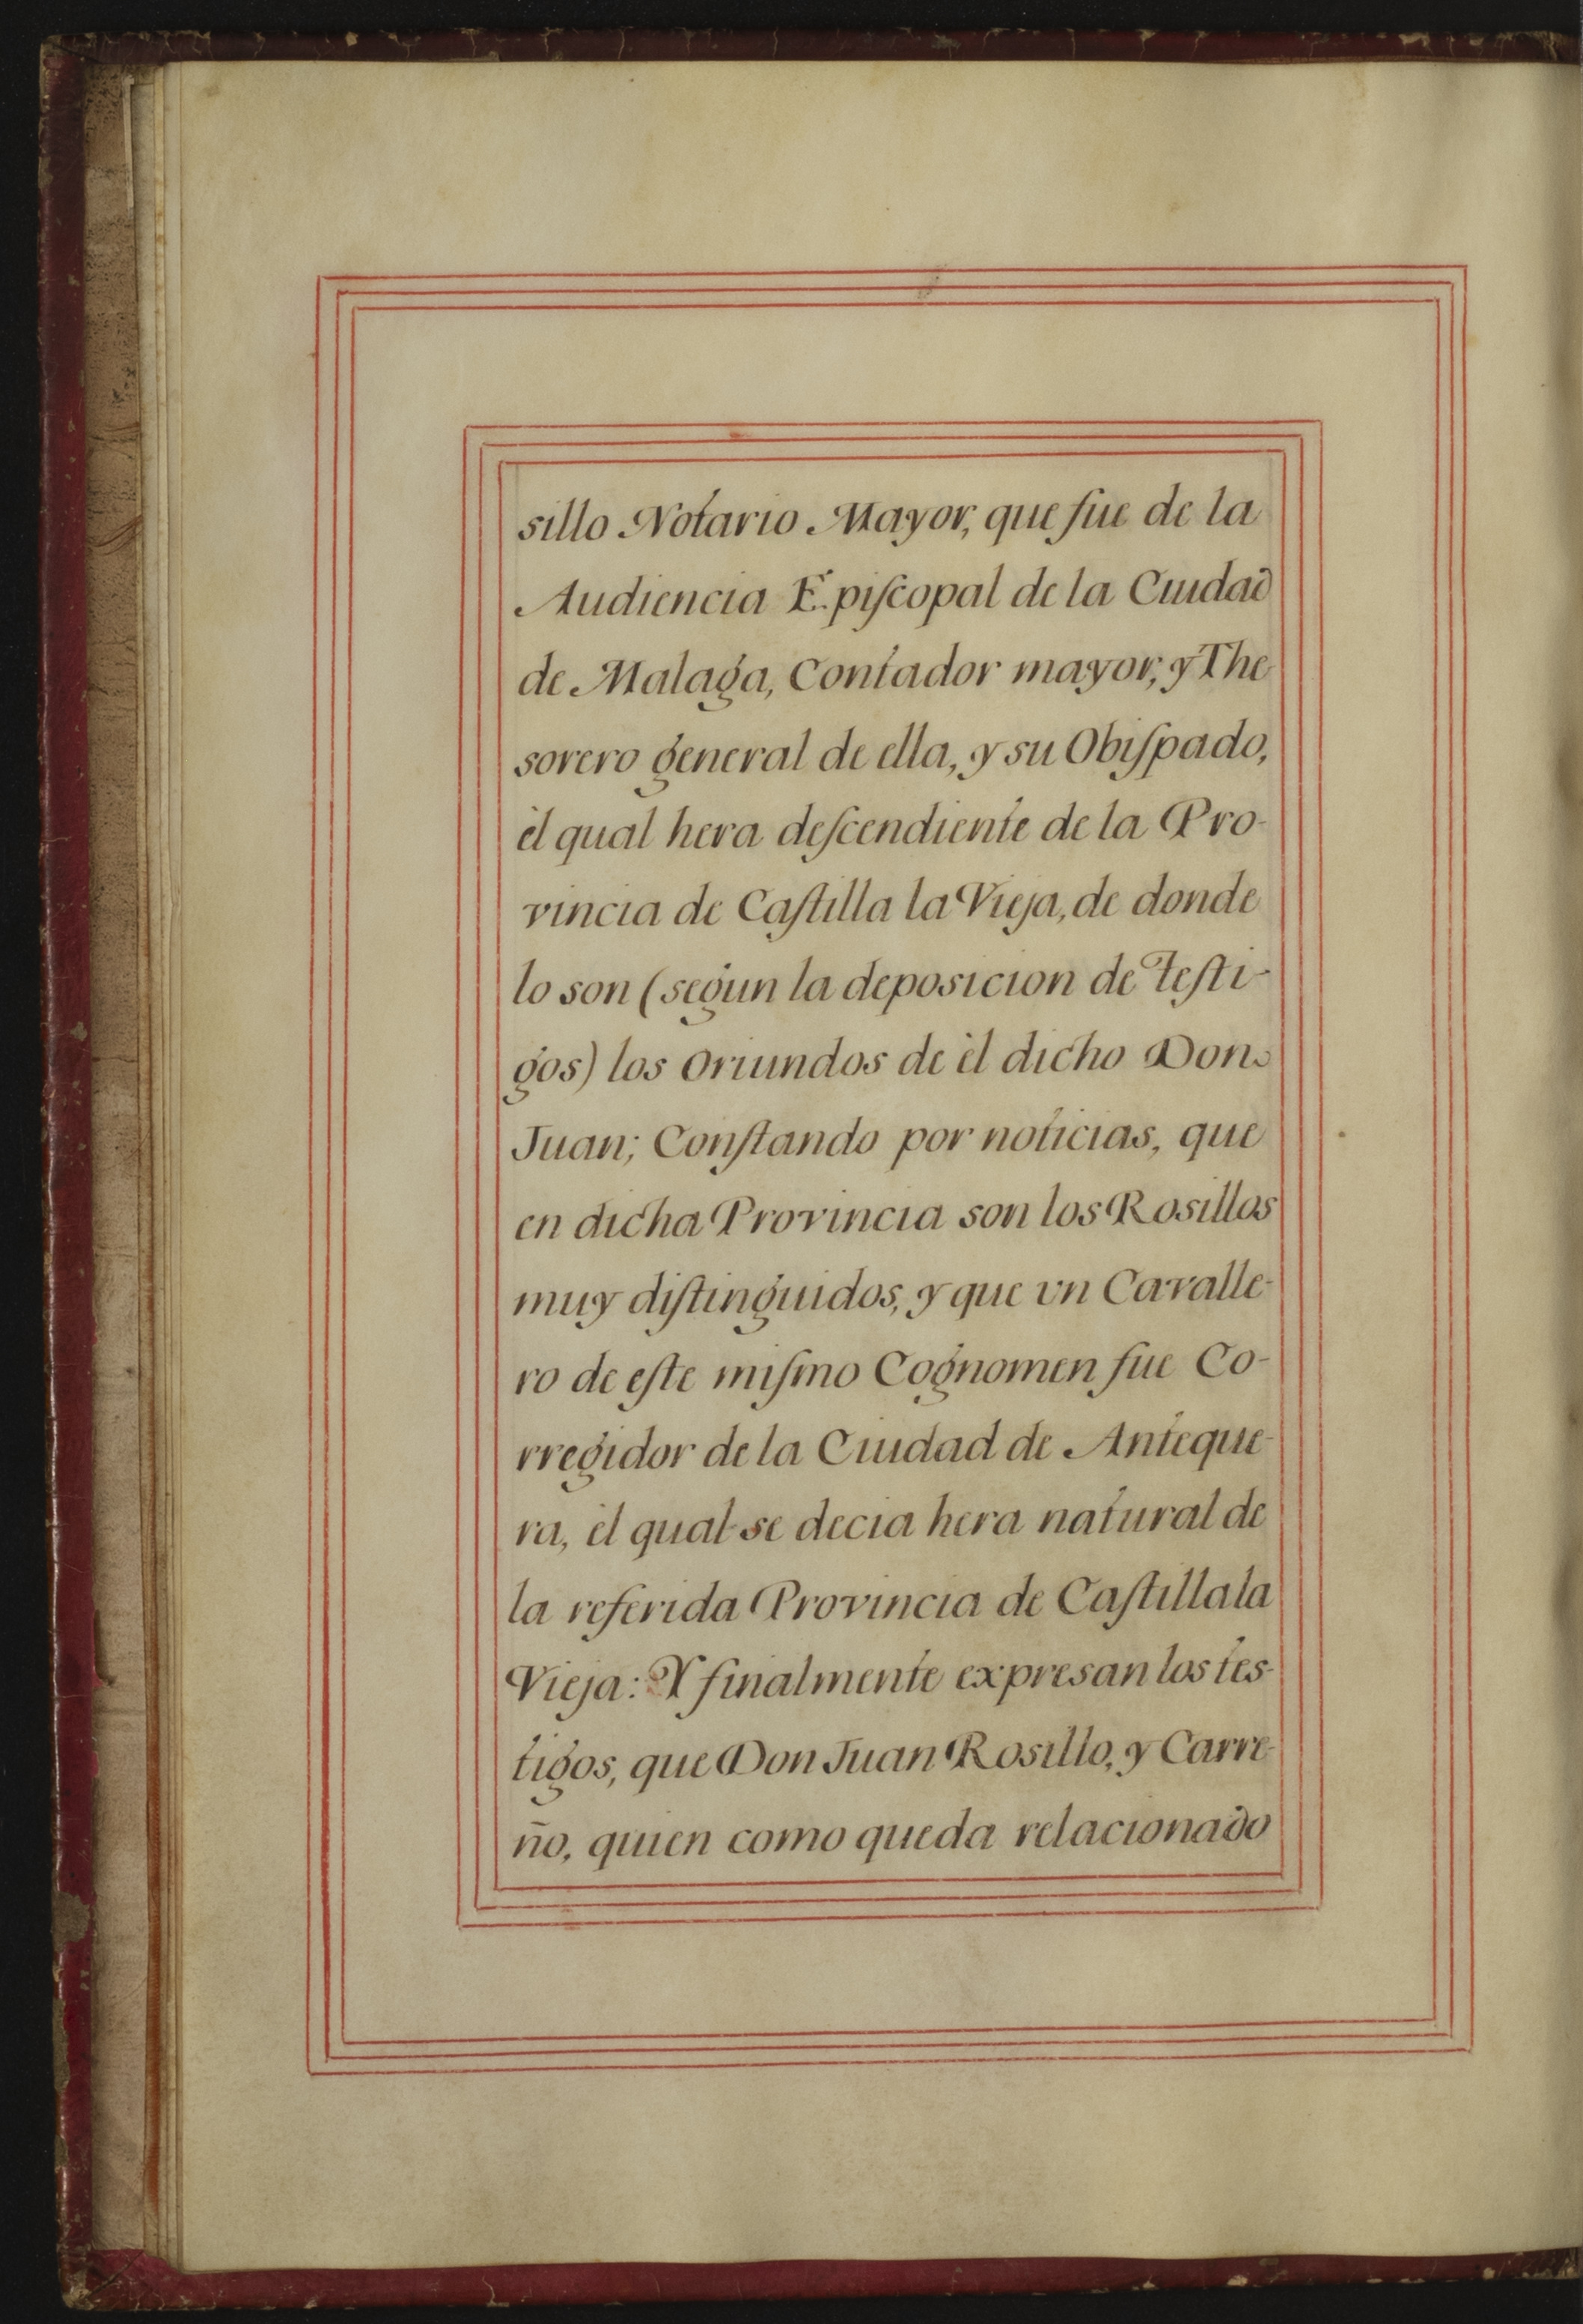 sillo Notario Mayor, que fue de la
Audiencia Epiſcopal de la Ciudad
de Malaga, Contador mayor, y The
sorero general de ella, y su Obiſpado,
èl qual hera deſcendiente de la Pro-
vincia de Caſtilla la Vieja, de donde
lo son (segun la deposicion de Teſti-
gos) los Oriundos de èl dicho Don
Juan; Conſtando por noticias, que
en dicha Provincia son los Rosillos
muy diſtinguidos, y que vn Cavalle-
ro de eſte miſmo Cognomen fue Co-
rregidor de la Ciudad de Anteque-
ra, èl qual se decia hera natural de
la referida Provincia de Caſtilla la
Vieja: Y finalmente expresan los tes-
tigos, que Don Juan Rosillo, y Carre-
ño, quien como queda relacionado